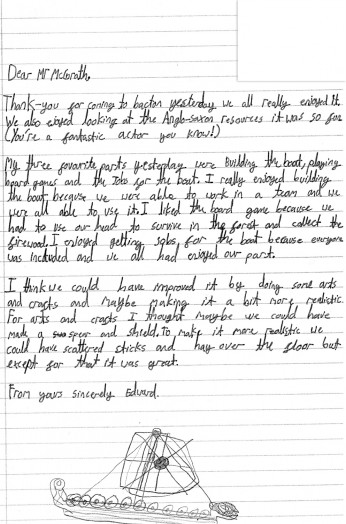 Dear Mr McGrath,
Thank-you for coming to bacton yesterday we all really enjoyed it.
We also ejoyed looking at the Anglo-saxon resources it was so fun
(You're a fantastic actor you know!)
My three favourite parts yesterday were Building the boat, playing
board games and the Jobs for the boat. I really enjoyed building
the boat because we were able to work in a team and we
were all able to use it. I liked the board game because we
had to use our head to survive in the forest and collect the
firewood. I enjoyed getting jobs for the boat because everyone
was included and we all had enjoyed our part.
I think we could have improved it by doing some arts
and crafts and maybe making it a bit more realistic.
For arts and crafts I thought maybe we could have
made a spear and shield. To make it more realistic we
could have scattered sticks and hay over the floor but
except for that it was great.
From yours sincerely Edward.